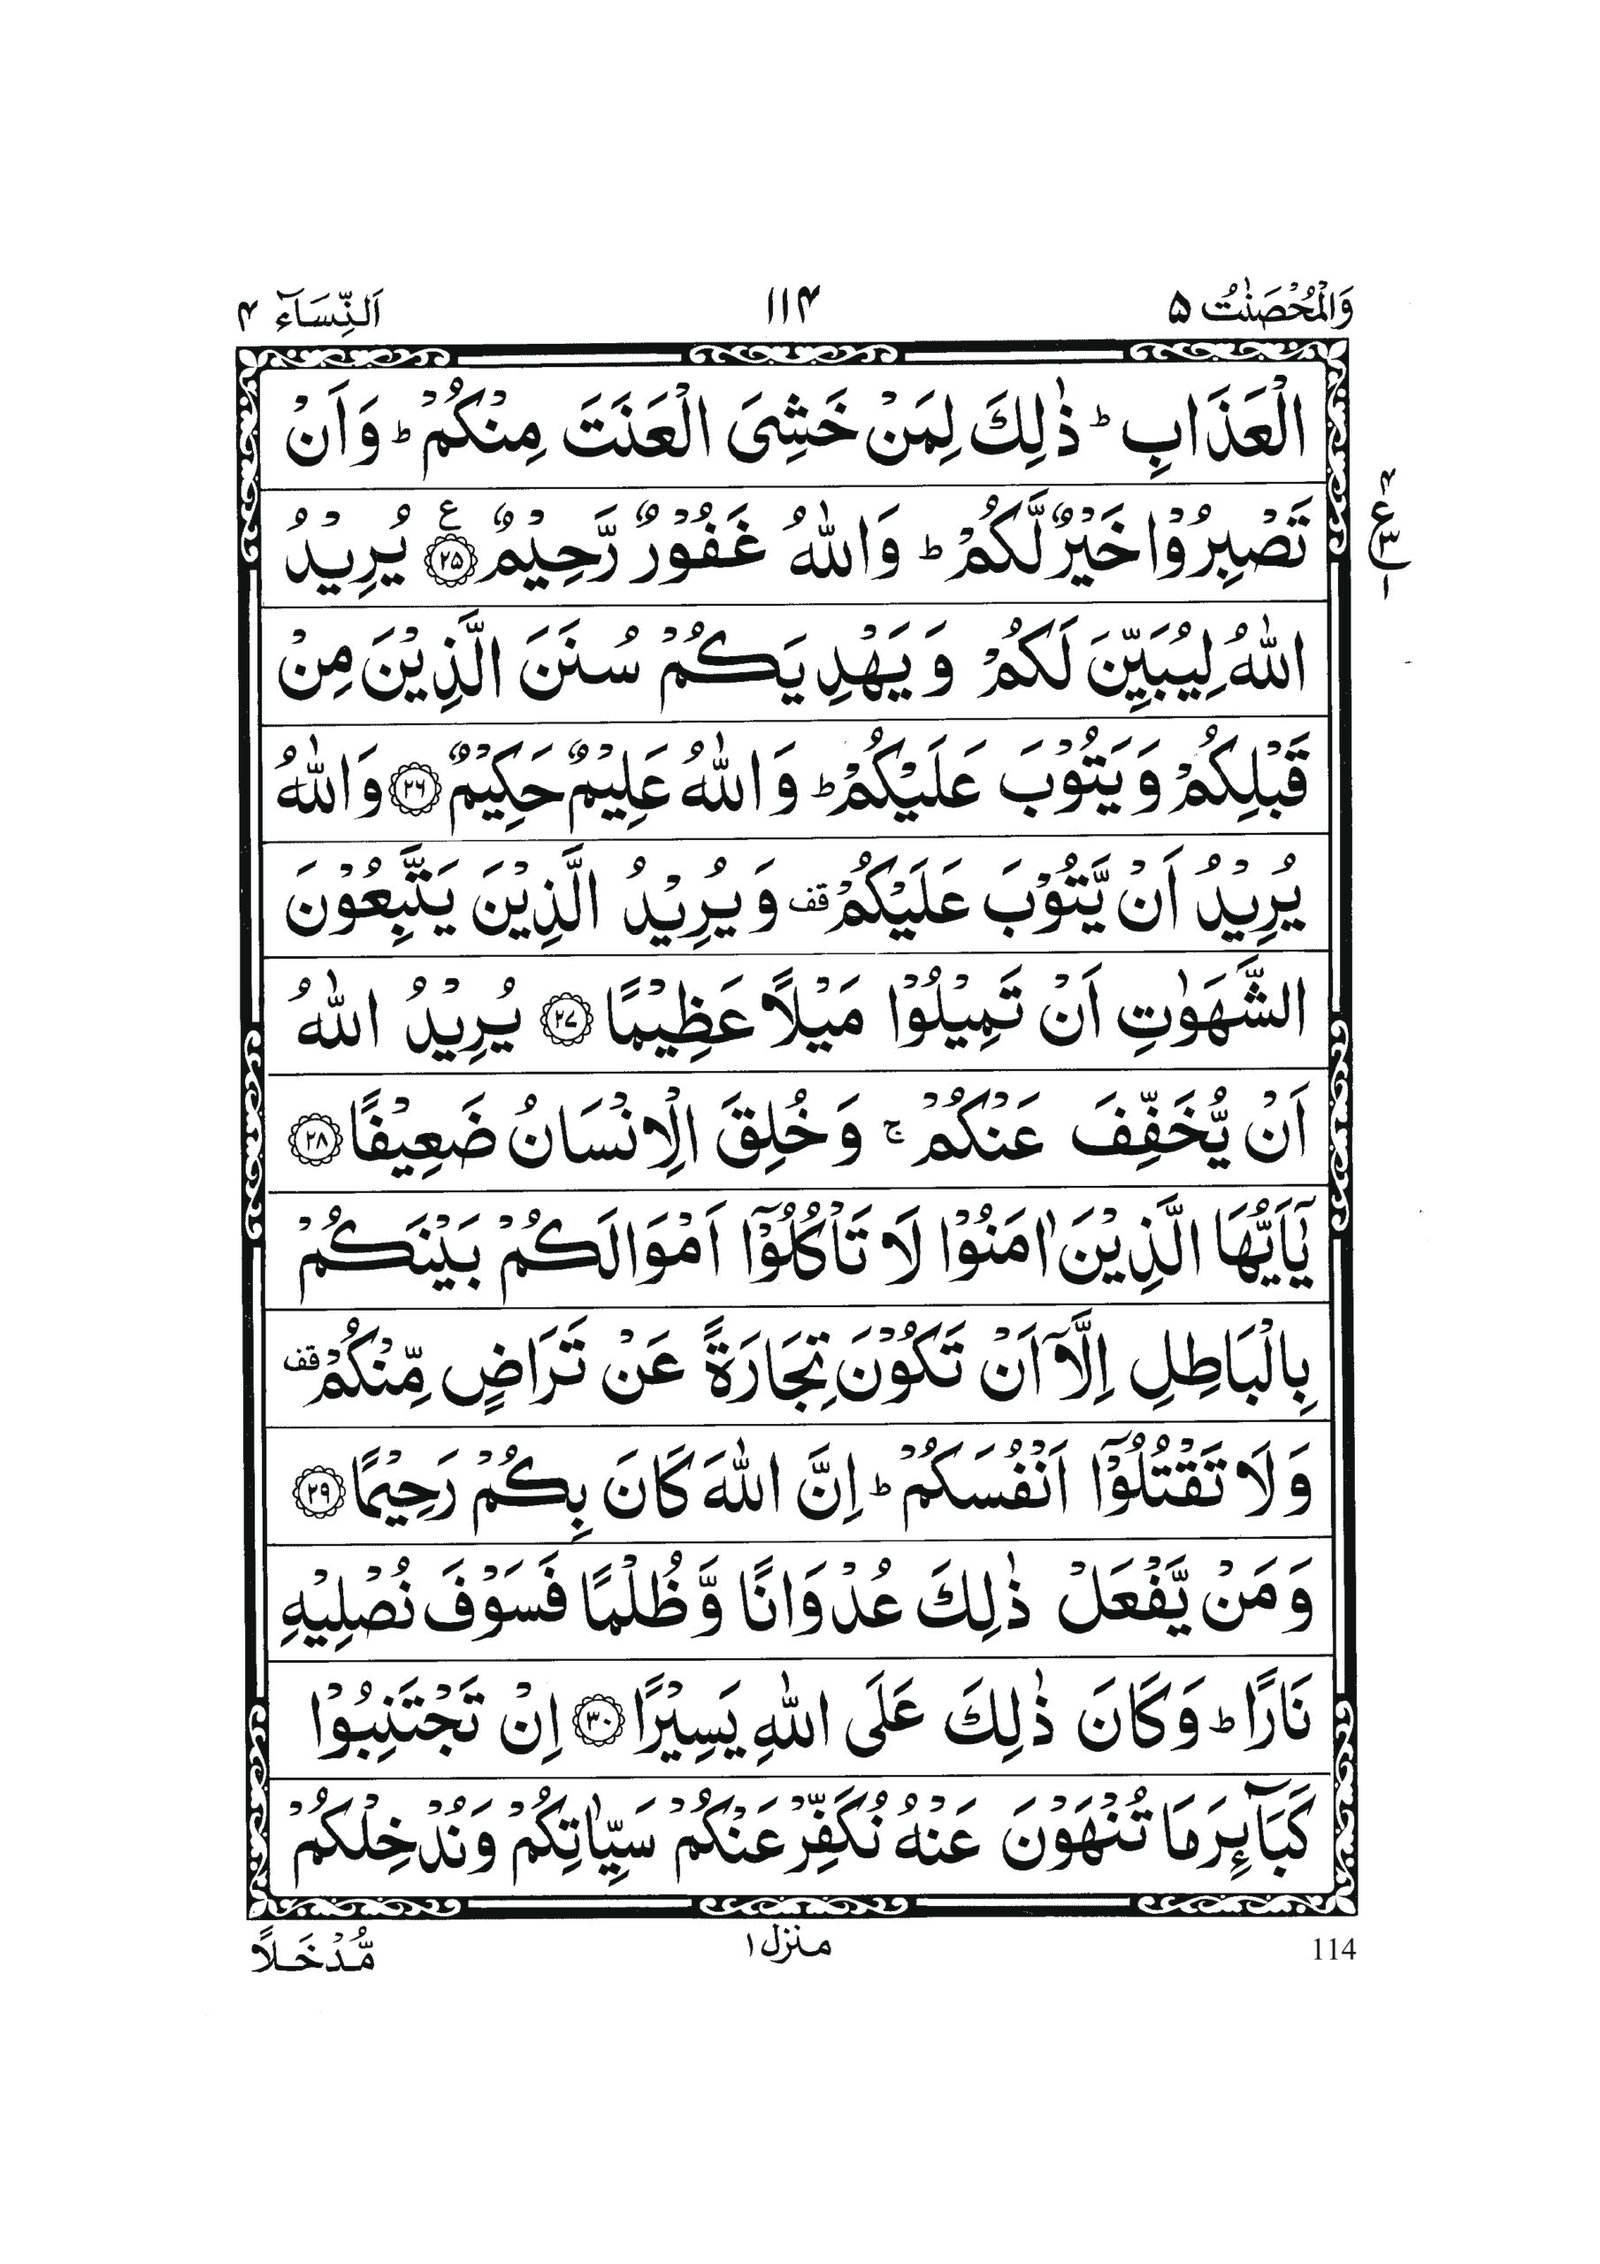 وَالْمُحْصَنٰتُ ۵
۱۱۴
اَلنِّسَآء ۴
الْعَذَابِ ؕ ذٰلِكَ لِمَنْ خَشِىَ الْعَنَتَ مِنْكُمْ ؕ وَ اَنْ
تَصْبِرُوْا خَيْرٌ لَّكُمْ ؕ وَ اللّٰهُ غَفُوْرٌ رَّحِيْمٌ ع ۲۵ يُرِيْدُ
اللّٰهُ لِيُبَيِّنَ لَكُمْ وَ يَهْدِيَكُمْ سُنَنَ الَّذِيْنَ مِنْ
قَبْلِكُمْ وَ يَتُوْبَ عَلَيْكُمْ ؕ وَ اللّٰهُ عَلِيْمٌ حَكِيْمٌ ۲۶ وَ اللّٰهُ
يُرِيْدُ اَنْ يَّتُوْبَ عَلَيْكُمْ قف وَ يُرِيْدُ الَّذِيْنَ يَتَّبِعُوْنَ
الشَّهَوٰتِ اَنْ تَمِيْلُوْا مَيْلًا عَظِيْمًا ۲۷ يُرِيْدُ اللّٰهُ
اَنْ يُّخَفِّفَ عَنْكُمْ ۚ وَ خُلِقَ الْاِنْسَانُ ضَعِيْفًا ۲۸
يٰٓاَيُّهَا الَّذِيْنَ اٰمَنُوْا لَا تَاْكُلُوْٓا اَمْوَالَكُمْ بَيْنَكُمْ
بِالْبَاطِلِ اِلَّآ اَنْ تَكُوْنَ تِجَارَةً عَنْ تَرَاضٍ مِّنْكُمْ قف
وَ لَا تَقْتُلُوْٓا اَنْفُسَكُمْ ؕ اِنَّ اللّٰهَ كَانَ بِكُمْ رَحِيْمًا ۲۹
وَ مَنْ يَّفْعَلْ ذٰلِكَ عُدْوَانًا وَّ ظُلْمًا فَسَوْفَ نُصْلِيْهِ
نَارًا ؕ وَ كَانَ ذٰلِكَ عَلَى اللّٰهِ يَسِيْرًا ۳۰ اِنْ تَجْتَنِبُوْا
كَبَآئِرَ مَا تُنْهَوْنَ عَنْهُ نُكَفِّرْ عَنْكُمْ سَيِّاٰتِكُمْ وَ نُدْخِلْكُمْ
۴
ع
۳
۱
مُّدْخَلًا
منزل ۱
114